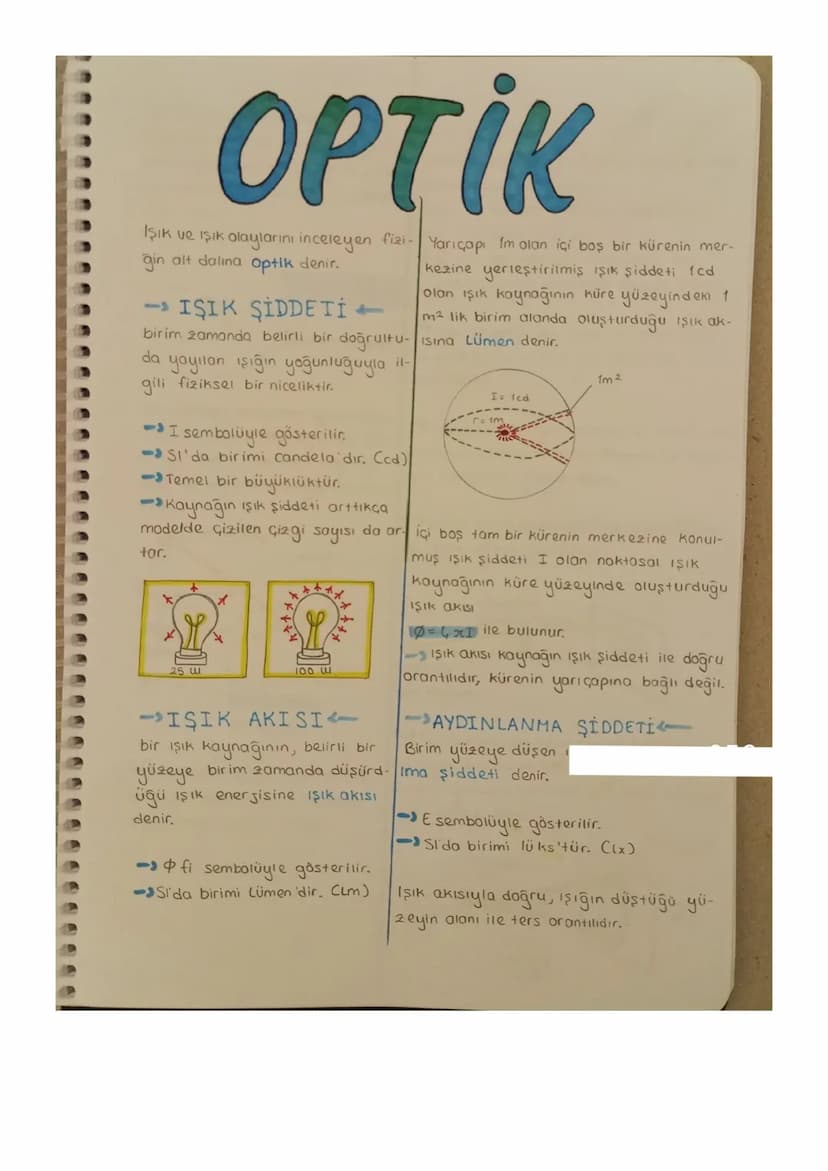 OPTİK
Işık ve ışık olaylarını inceleyen fizi-
ğin alt dalına optik denir.
IŞIK ŞİDDETİ
birim zamanda belirli bir doğrultu-
da yayılan ışığın yoğunluğuyla il-
gili fiziksel bir niceliktir.
I sembolüyle gösterilir.
SI'da birimi candela'dır. (cd)
Temel bir büyüklüktür.
Kaynağın ışık şiddeti arttıkça
modelde çizilen çizgi sayısı da ar-
tar.
25 W
100 W
IŞIK AKISI
bir ışık kaynağının, belirli bir
yüzeye birim zamanda düşürd-
üğü ışık enerjisine ışık akısı
denir.
Φ fi sembolüyle gösterilir.
SI'da birimi Lümen'dir. (Lm)
Yarıçapı 1m olan içi boş bir kürenin mer-
kezine yerleştirilmiş ışık şiddeti 1cd
olan ışık kaynağının küre yüzeyindeki 1
m² lik birim alanda oluşturduğu ışık ak-
ısına Lümen denir.
1m²
I = 1cd
r=1m
İçi boş tam bir kürenin merkezine konul-
muş ışık şiddeti I olan noktasal ışık
kaynağının küre yüzeyinde oluşturduğu
ışık akısı
Ø=4πI ile bulunur.
Işık akısı kaynağın ışık şiddeti ile doğru
orantılıdır, kürenin yarıçapına bağlı değil.
AYDINLANMA ŞİDDETİ
Birim yüzeye düşen
lma şiddeti denir.
E sembolüyle gösterilir.
SI'da birimi lüks'tür. (Lx)
Işık akısıyla doğru, ışığın düştüğü yü-
zeyin alanı ile ters orantılıdır.